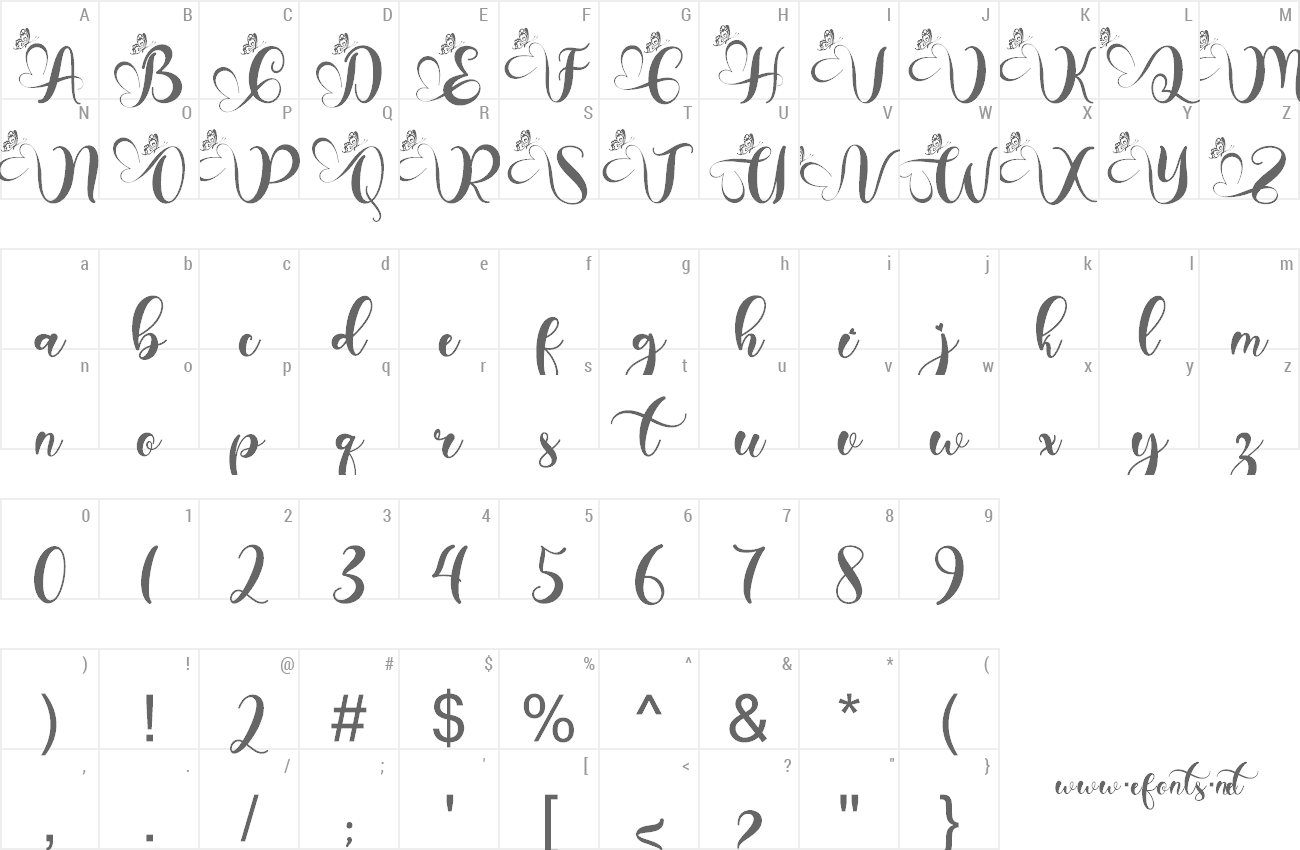 A B C D E F G H I J K L M
A B C D E F G H I J K L M
N O P Q R S T U V W X Y Z
N O P Q R S T U V W X Y Z
a b c d e f g h i j k l m
a b c d e f g h i j k l m
n o p q r s t u v w x y z
n o p q r s t u v w x y z
0 1 2 3 4 5 6 7 8 9
0 1 2 3 4 5 6 7 8 9
) ! @ # $ % ^ & * (
) ! 2 # $ % ^ & * (
, . / ; ' [ < ? " }
, . / ; ' [ < ? " }
www.efonts.net